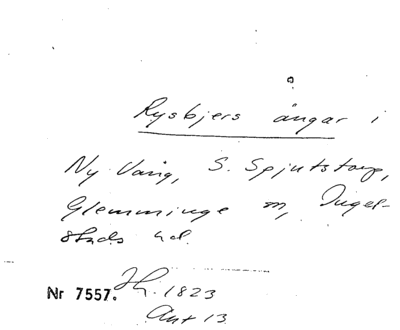 Rysbjers ångar i
Ny Vång, S. Spjutstorp,
Glemminge sn, Ingel-
stads hd.
Nr 7557. 1823
Art 13